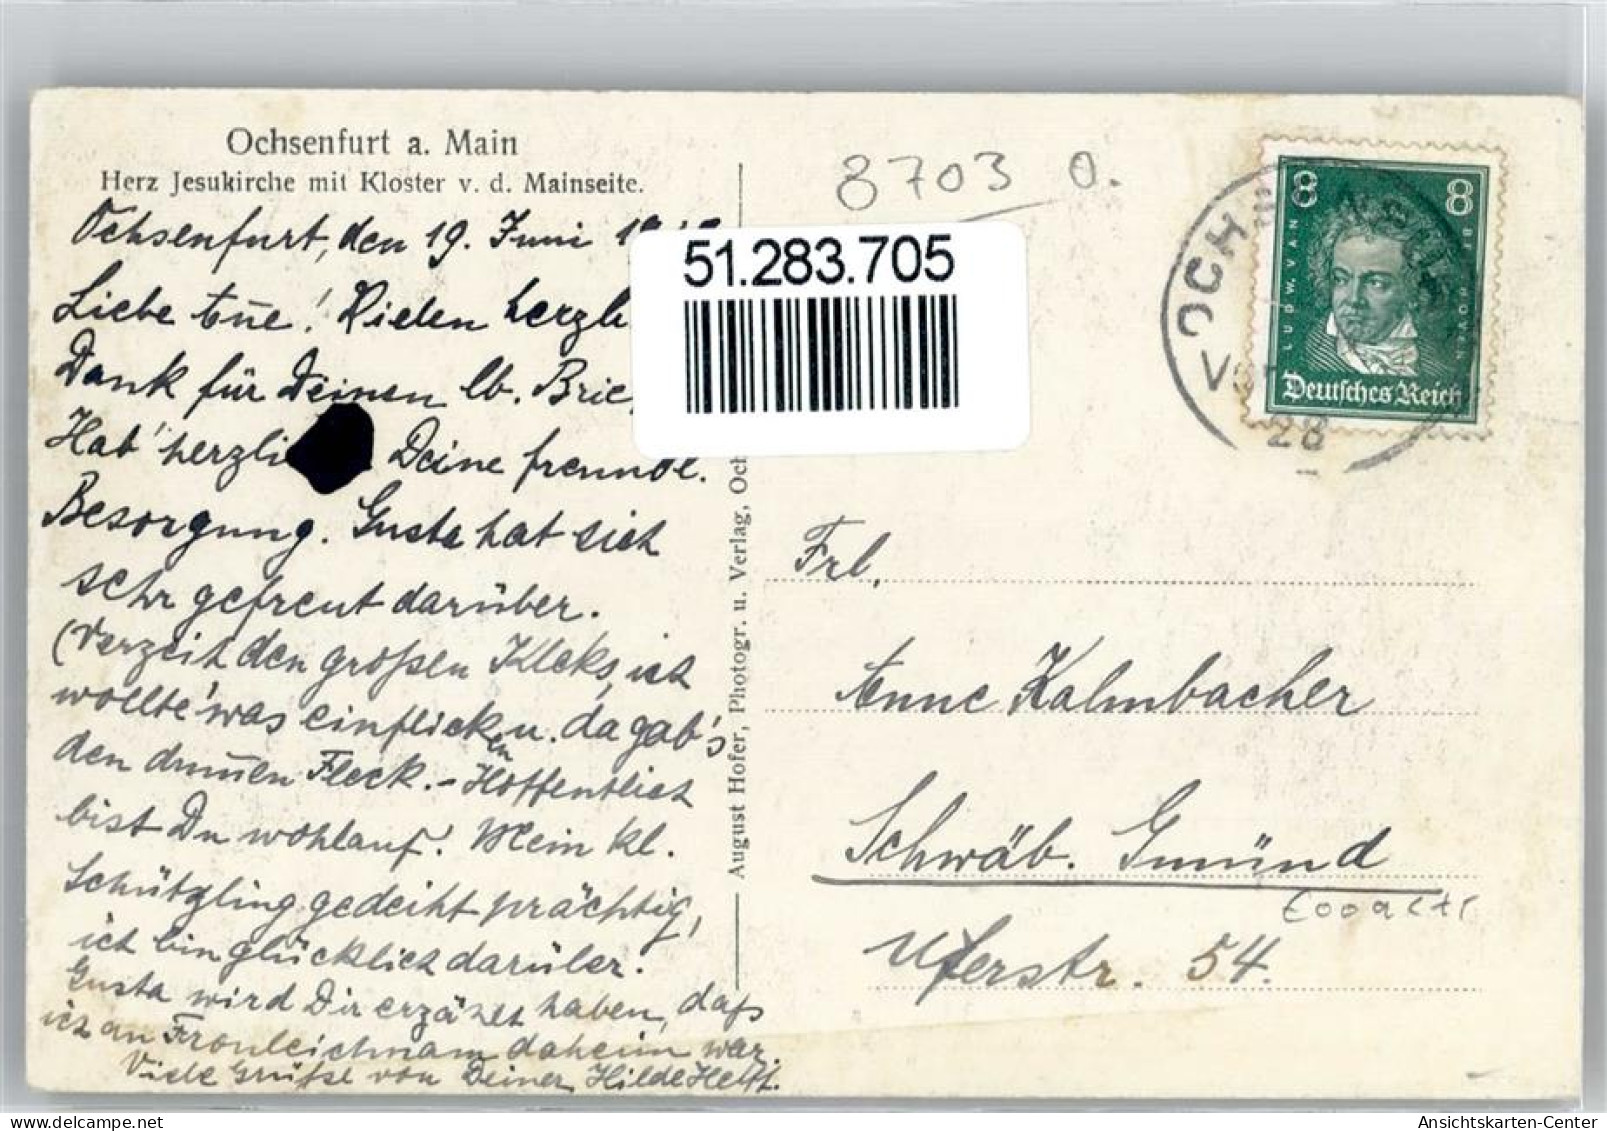 Ochsenfurt a. Main
Herz Jesukirche mit Kloster v. d. Mainseite.
8703 O.
51.283.705
Ochsenfurt, den 19. Juni
Liebe Änne! Vielen
Dank für Deinen lb.
Hab' Deine freundl.
Besorgung. Gusta hat sich
sehr gefreut darüber.
(Verzeih den großen Kleks, ich
wollte 'was einflicken u. da gab's
den dummen Fleck. - Hoffentlich
bist Du wohlauf! Mein kl.
Schützling gedeiht prächtig,
ich bin glücklich darüber.
Gusta wird Dir erzählt haben, daß
ich an Fronleichnam daheim war.
Viele Grüße von Deiner Hilde
August Hofer, Photogr. u. Verlag,
8 8
LUDW. VAN
BEETHOVEN
Deutsches Reich
28
Frl.
Änne Kalmbacher
Schwäb. Gmünd
Uferstr. 54.
Ansichtskarten-Center